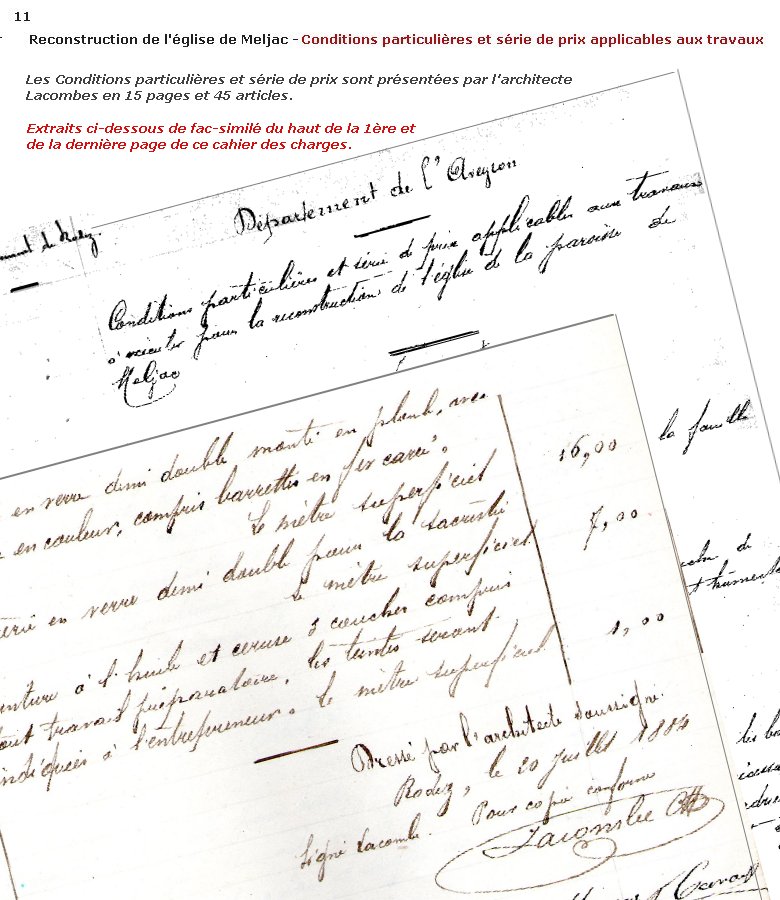 11
Reconstruction de l'église de Meljac - Conditions particulières et série de prix applicables aux travaux
Les Conditions particulières et série de prix sont présentées par l'architecte
Lacombes en 15 pages et 45 articles.
Extraits ci-dessous de fac-similé du haut de la 1ère et
de la dernière page de ce cahier des charges.
Département de l'Aveyron
de Rodez.
Conditions particulières et série de prix applicables aux travaux
à exécuter pour la reconstruction de l'église de la paroisse de
Meljac
la feuille
en verre demi double monté en plomb, avec
en couleur, compris barrettes en fer carré.
Le mètre superficiel 16,00
en verre demi double pour la sacristie
le mètre superficiel 7,00
à l'huile et ceruse 3 couches compris
tout travail préparatoire, les teintes seront
indiquées à l'entrepreneur. le mètre superficiel 1,00
Dressé par l'architecte soussigné.
Rodez, le 20 juillet 1884
Signé Lacombe. Pour copie conforme
Lacombe